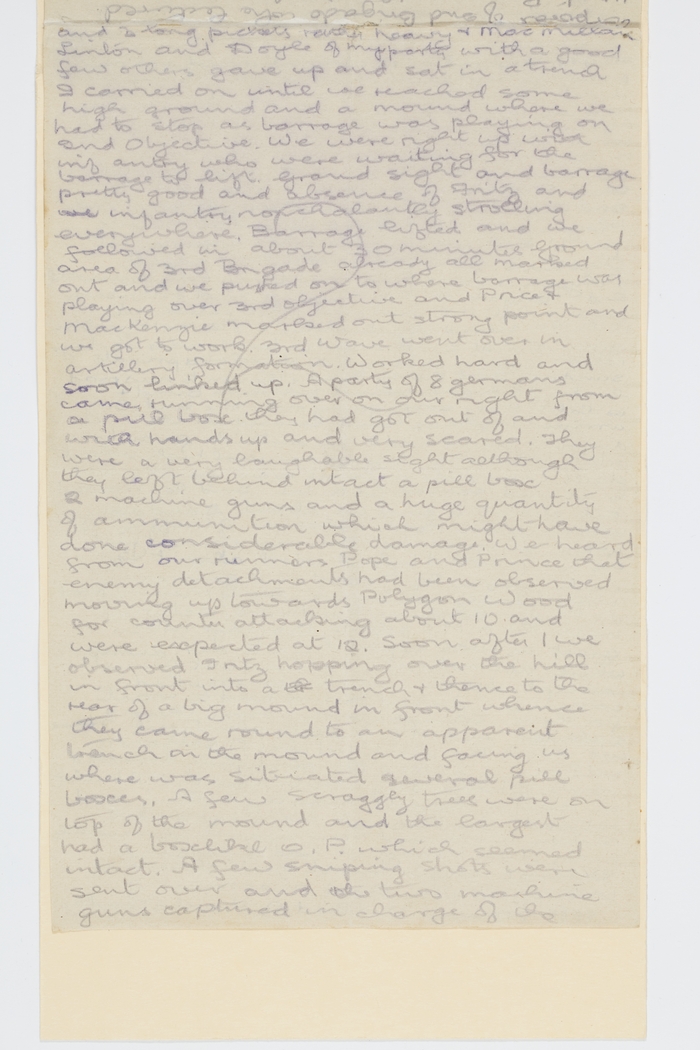 and 2 long pickets rather heavy & MacMillan
Linton and Doyle of my party with a good
few others gave up and sat in a trench
I carried on until we reached some
high ground and a mound where we
had to stop as barrage was playing on
2nd Objective. We were right up with
infantry who were waiting for the
barrage to lift. Grand sight and barrage
pretty good and absence of Fritz and
infantry nonchalantly strolling
everywhere. Barrage lifted and we
followed in about 30 minutes. Ground
area of 3rd Brigade already all marked
out and we pushed on to where barrage was
playing over 3rd objective and Price &
MacKenzie marked out strong point and
we got to work 3rd Wave went over in
artillery formation. Worked hard and
soon linked up. A party of 8 germans
came running over on our right from
a pill box they had got out of and
with hands up and very scared. They
were a very laughable sight although
they left behind intact a pill box
2 machine guns and a huge quantity
of ammunition which might have
done considerable damage. We heard
from our runners Pope and Prince that
enemy detachments had been observed
moving up towards Polygon Wood
for counter attacking about 10 and
were expected at 12. Soon after 1 we
observed Fritz hopping over the hill
in front into a trench & thence to the
rear of a big mound in front whence
they came round to an apparent
trench on the mound and facing us
where was situated several pill
boxes. A few scraggly trees were on
top of the mound and the largest
had a boxlike O.P. which seemed
intact. A few sniping shots were
sent over and the two machine
guns captured in charge of the